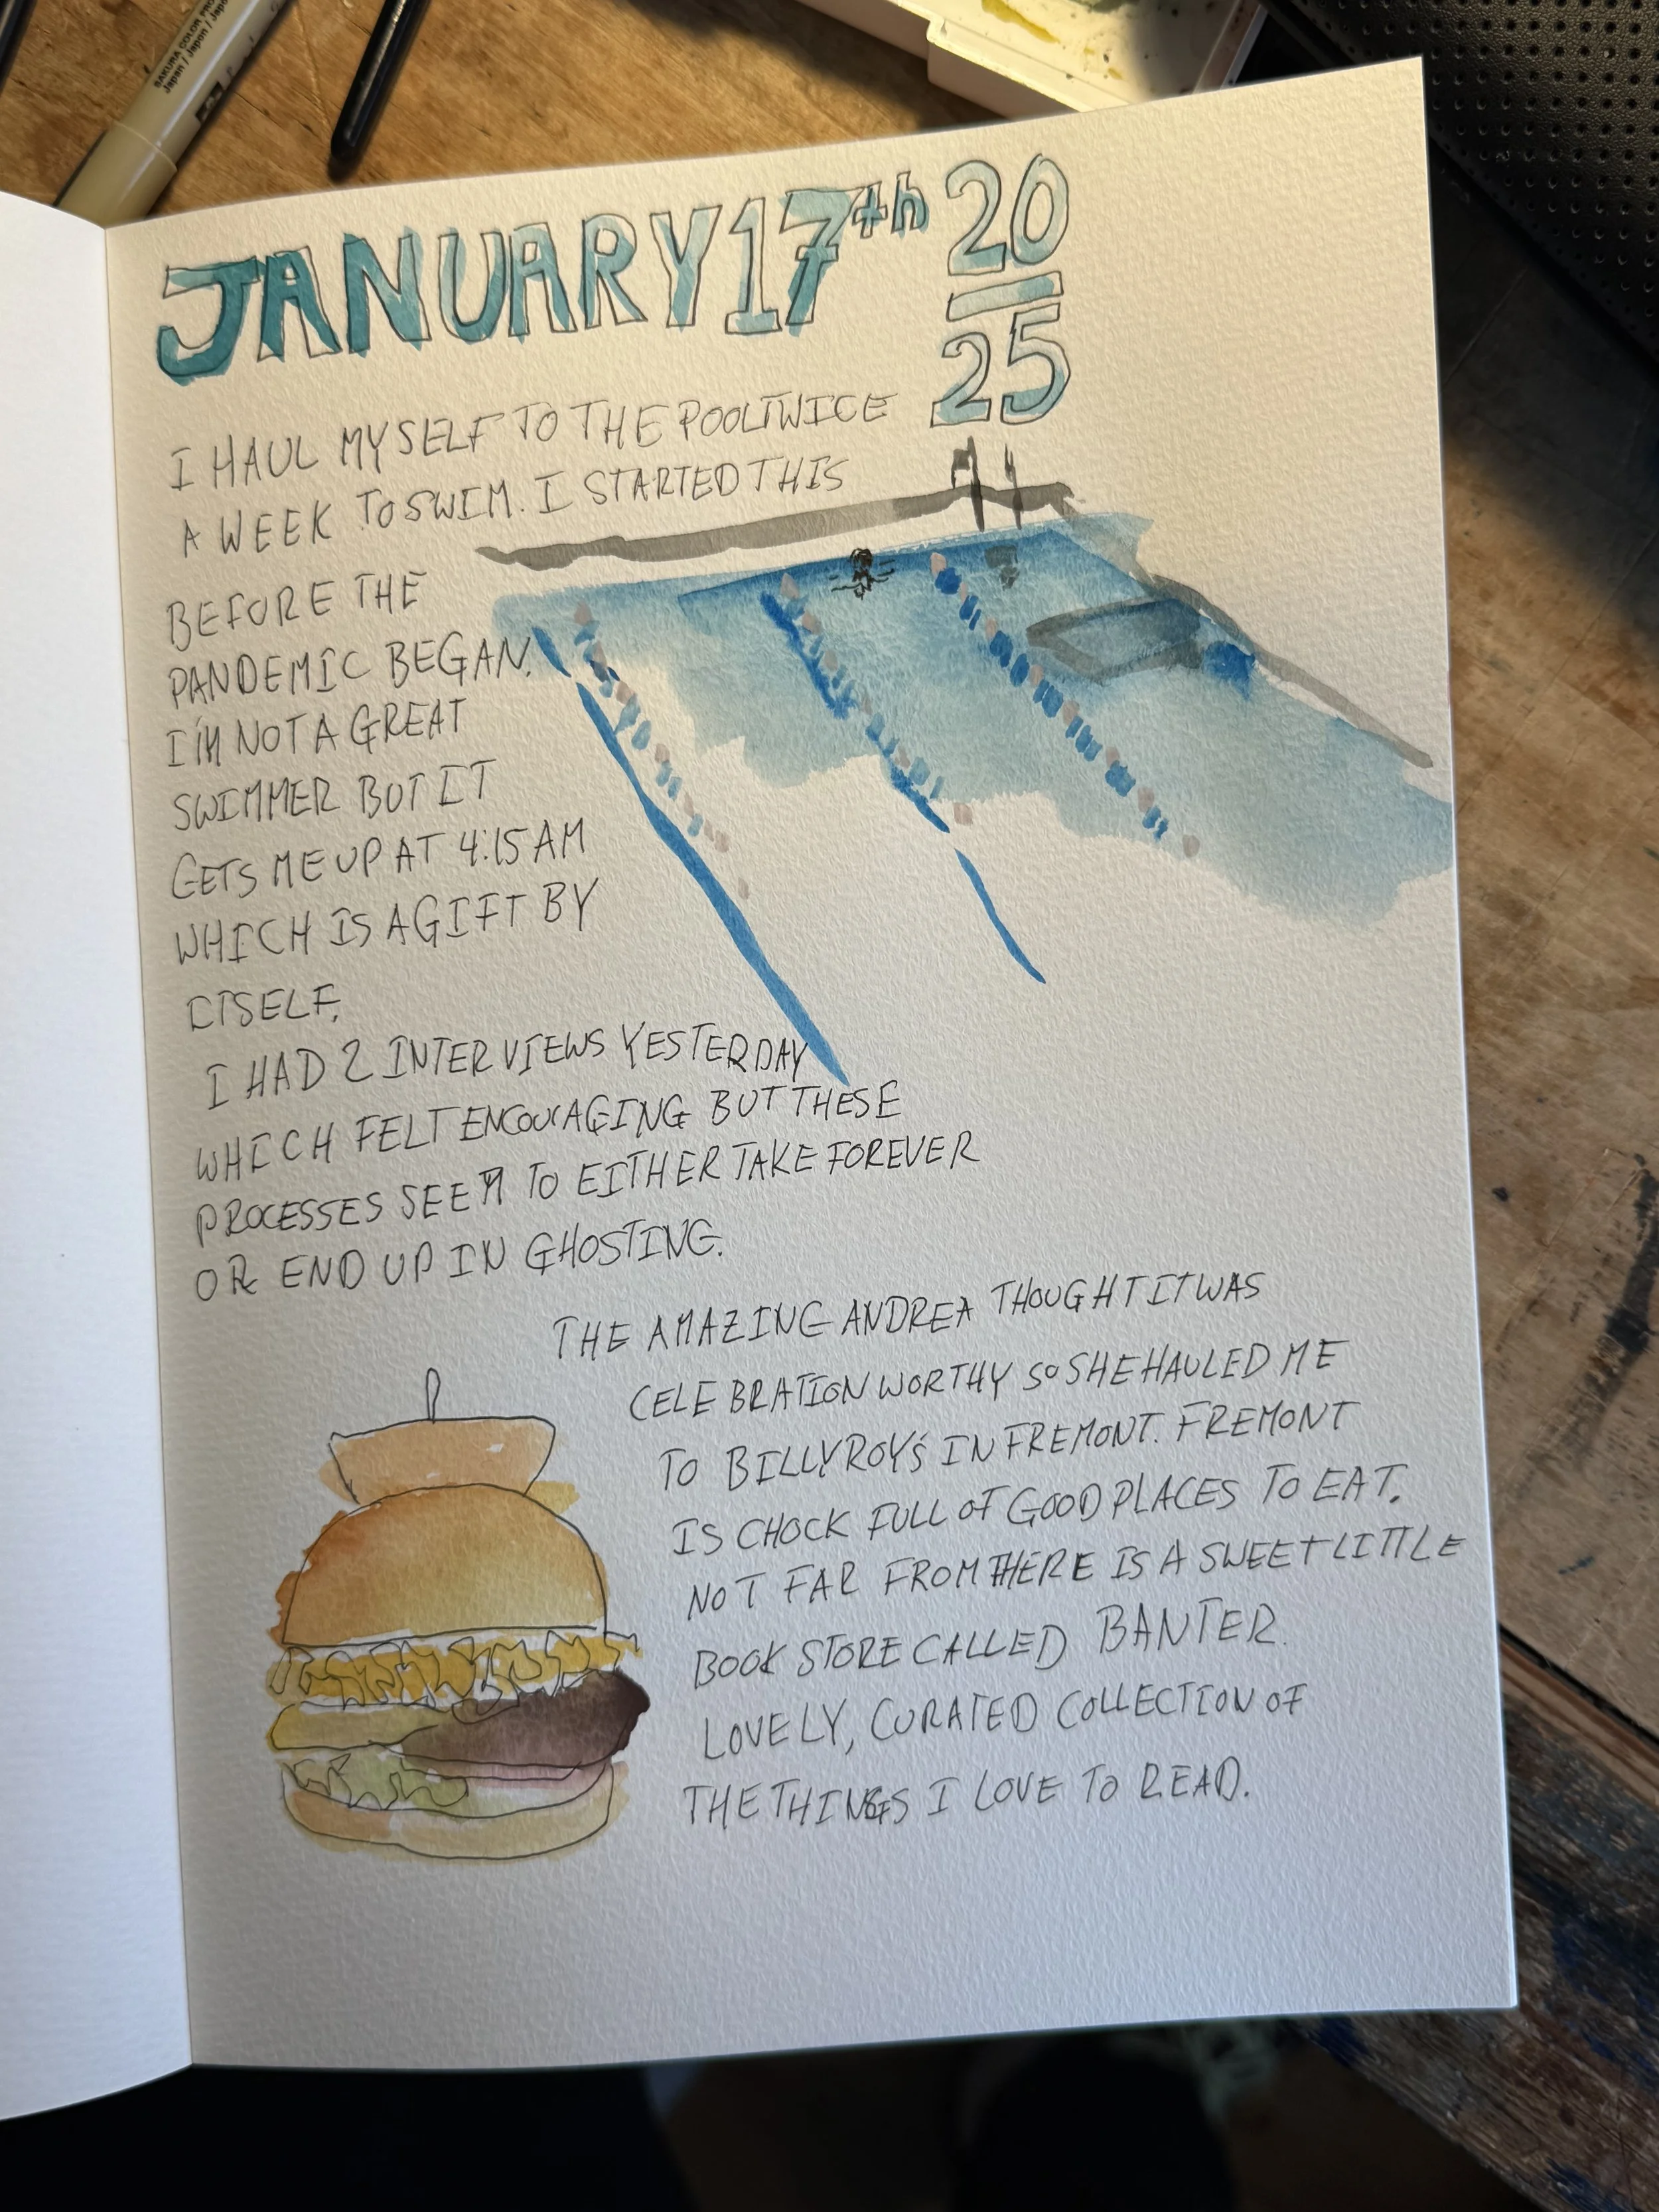 SAKURA COLOR PRO
Japan / Japo
JANUARY 17th 20
25
I HAUL MYSELF TO THE POOL TWICE
A WEEK TO SWIM. I STARTED THIS
BEFORE THE
PANDEMIC BEGAN.
I'M NOT A GREAT
SWIMMER BUT IT
GETS ME UP AT 4:15 AM
WHICH IS A GIFT BY
ITSELF.
I HAD 2 INTERVIEWS YESTERDAY
WHICH FELT ENCOURAGING BUT THESE
PROCESSES SEEM TO EITHER TAKE FOREVER
OR END UP IN GHOSTING.
THE AMAZING ANDREA THOUGHT IT WAS
CELEBRATION WORTHY SO SHE HAULED ME
TO BILLY ROY'S IN FREMONT. FREMONT
IS CHOCK FULL OF GOOD PLACES TO EAT.
NOT FAR FROM THERE IS A SWEET LITTLE
BOOK STORE CALLED BANTER.
LOVELY, CURATED COLLECTION OF
THE THINGS I LOVE TO READ.